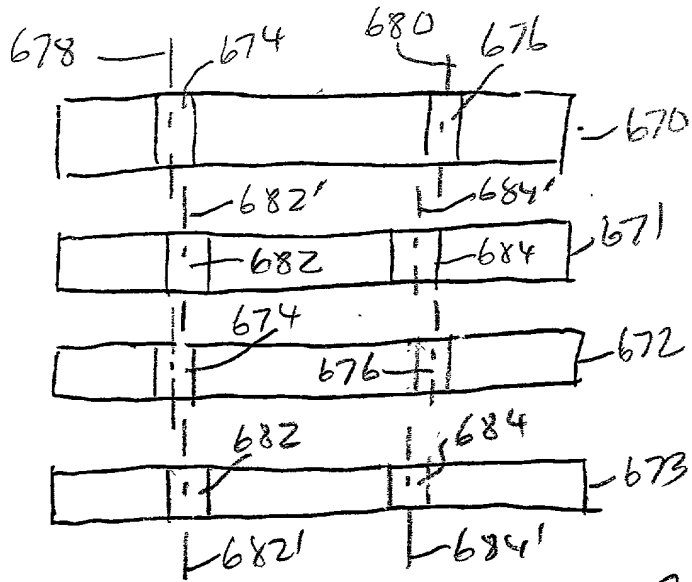 678 674 680 676
670
682' 684'
671
682 684
674
676 672
682 684
673
682' 684'